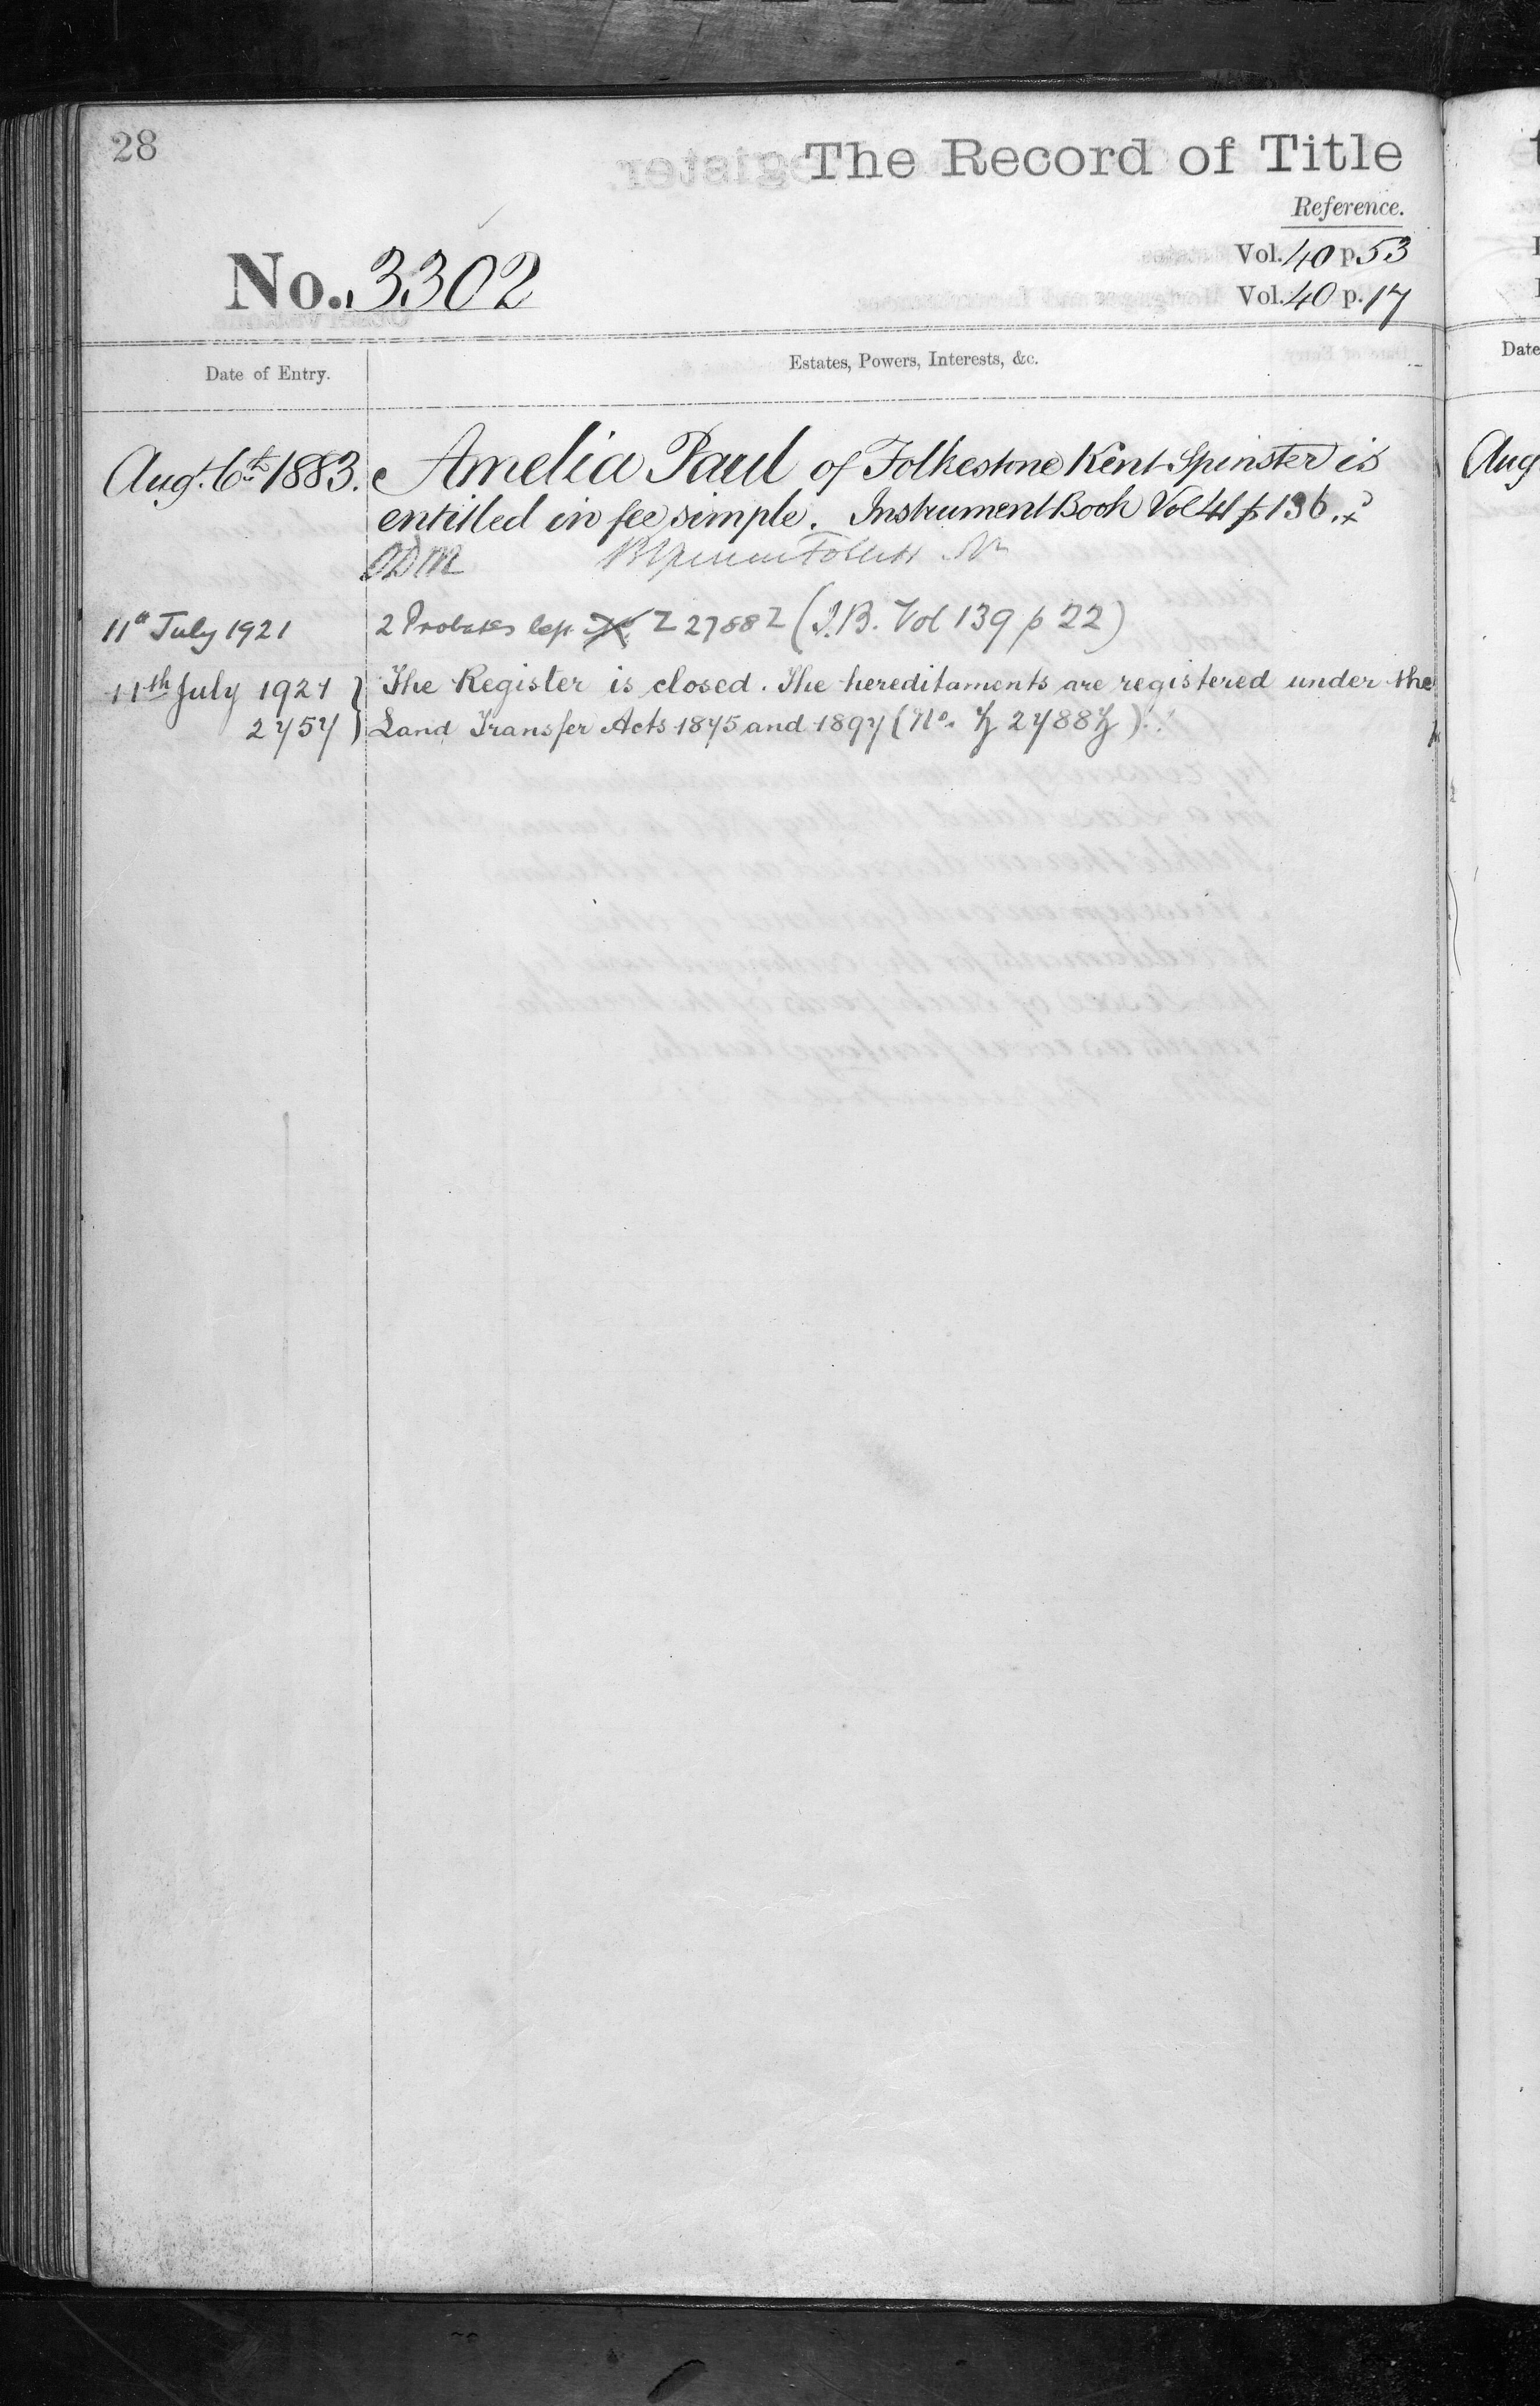 28
The Record of Title
Reference.
No. 3302
Vol. 40 p. 53
Vol. 40 p. 17
Date of Entry.
Estates, Powers, Interests, &c.
Date
Aug. 6th 1883. Amelia Paul of Folkestone Kent Spinster is
Aug
entitled in fee simple. Instrument Book Vol 41 p 136.
ODM
11th July 1921 2 Probates Z 2788 Z (I.B. Vol 139 p 22)
11th July 1921 } The Register is closed. The hereditaments are registered under the
2757 } Land Transfer Acts 1875 and 1897 (No. Z 2788 Z).